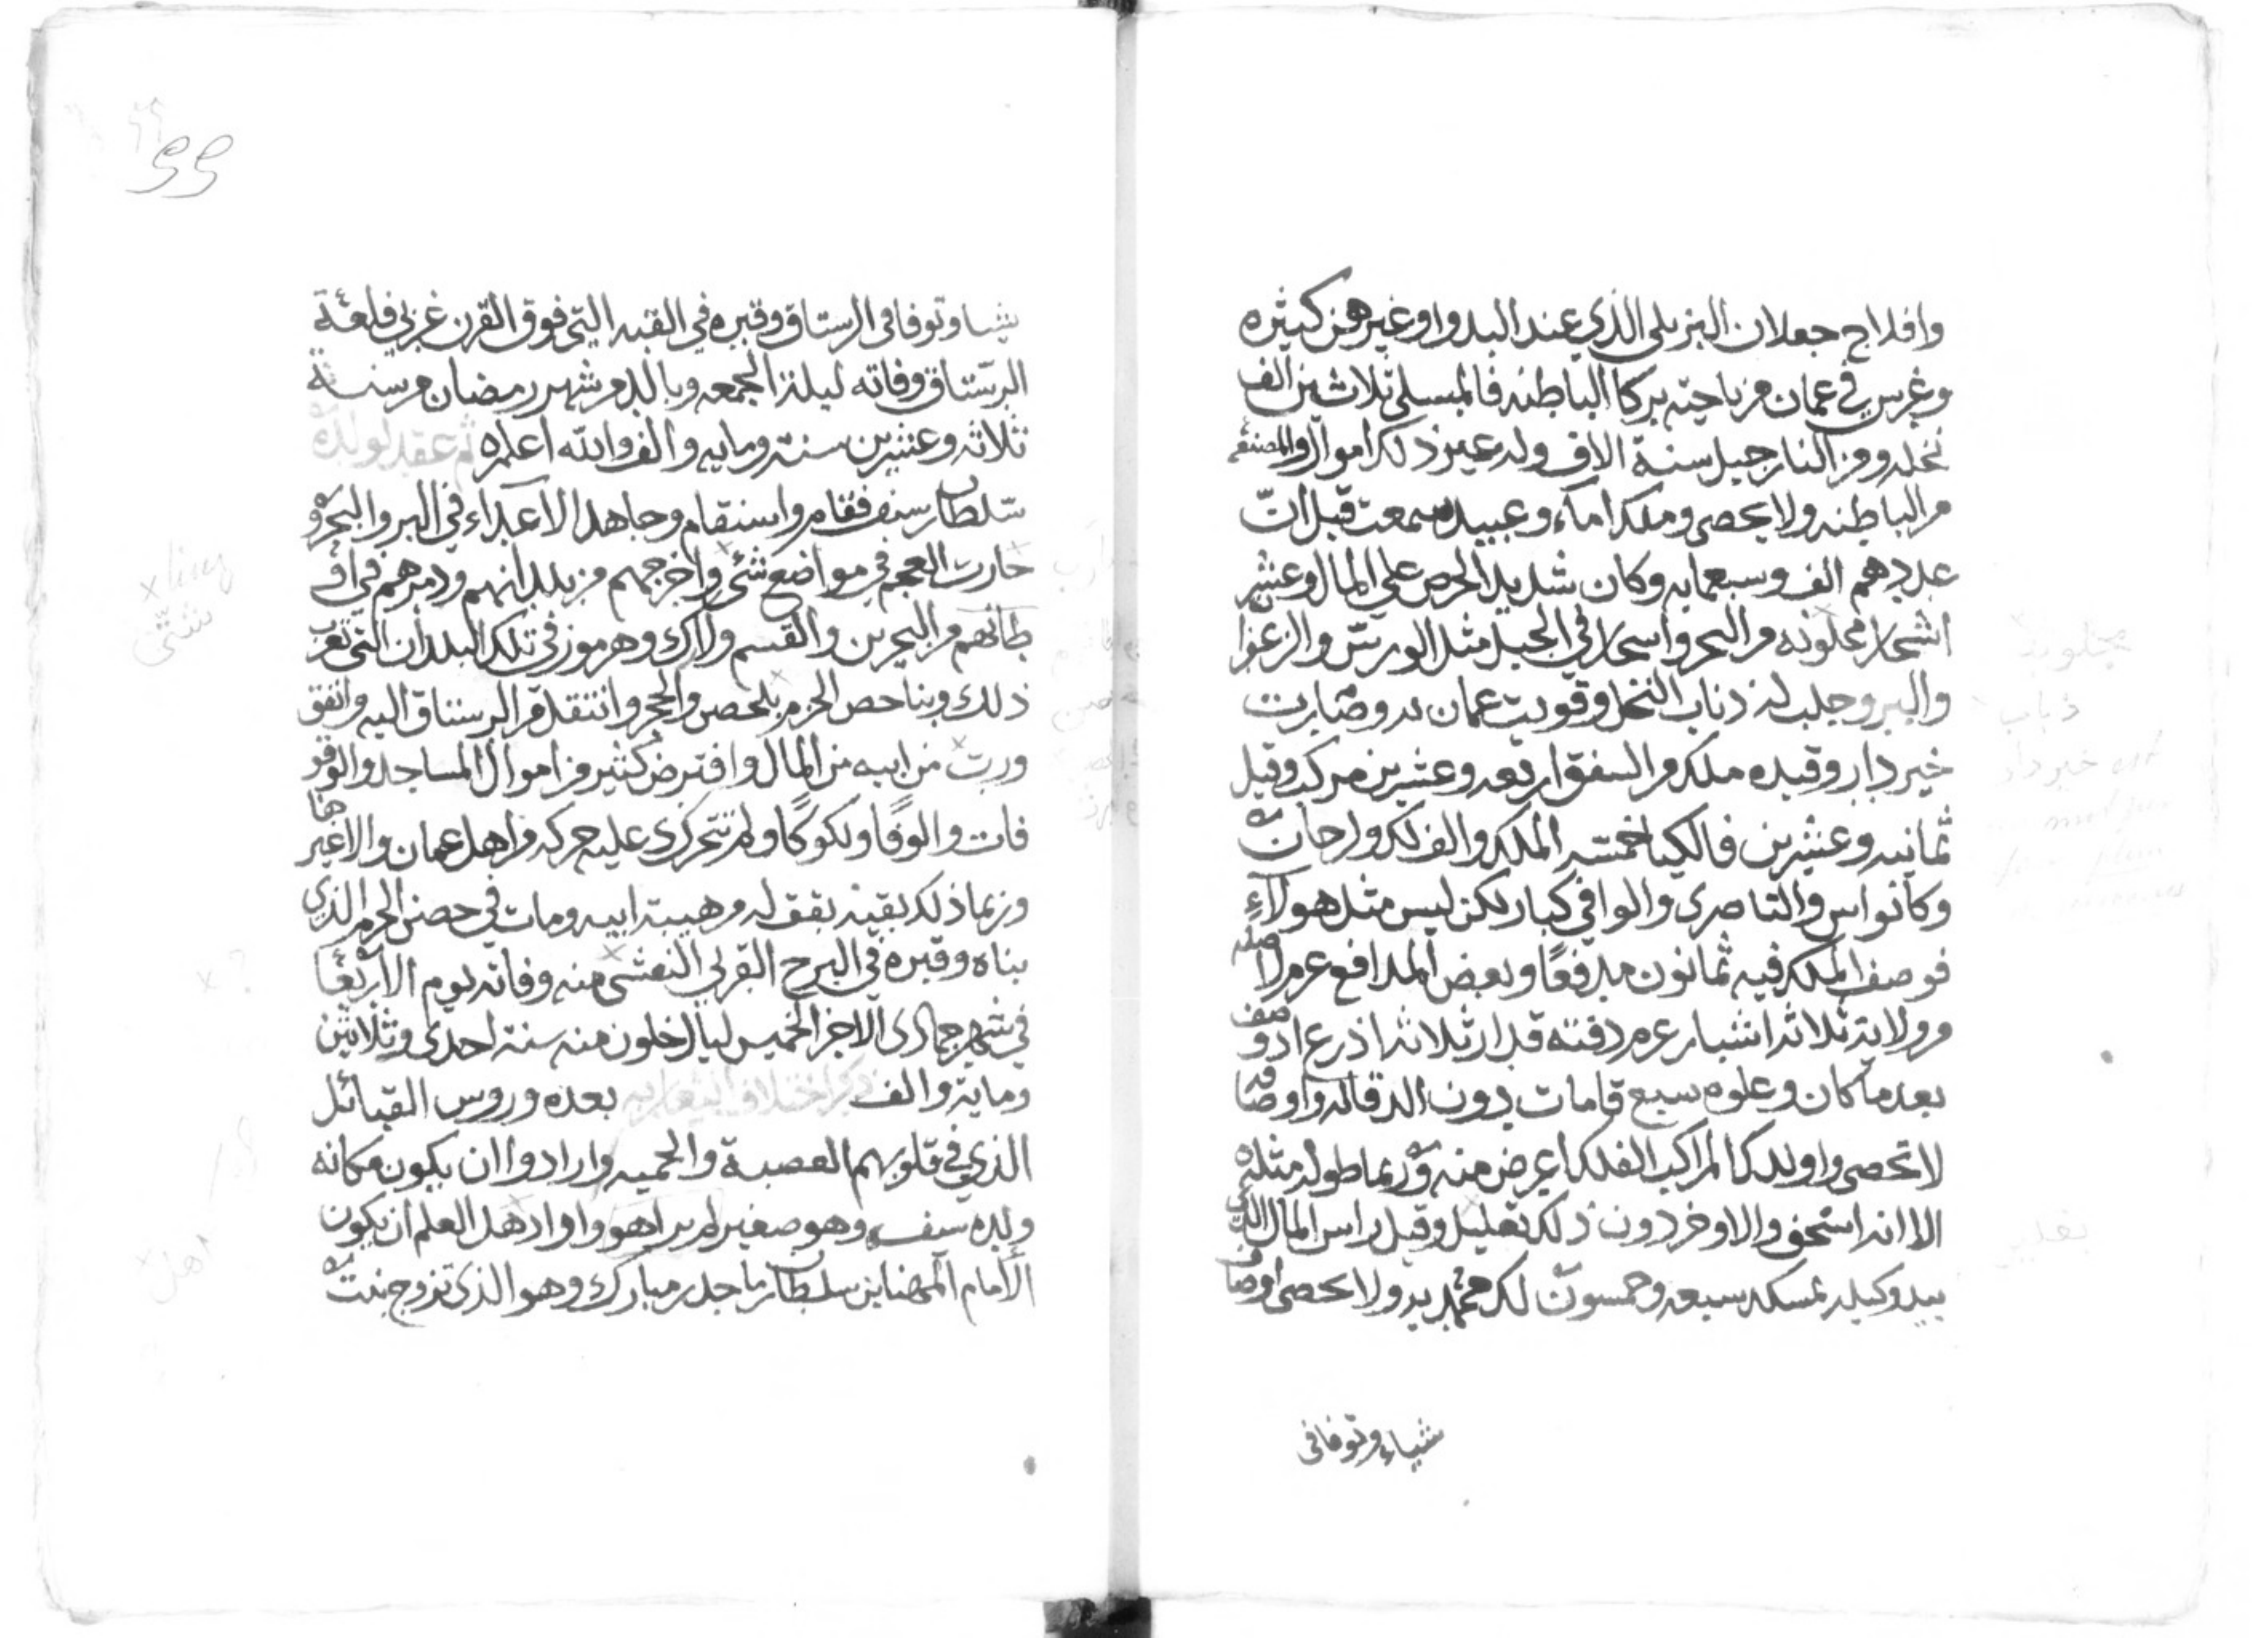 وافلاج جعلان البزيلي الذي عند البدو او غيرهن كثيره
وغرس في عمان من ناحيته بركا الباطنه فالمبسلي ثلاثين الف
نخله ومن النارجيل ستة الاف وله غير ذلك اموال والمصنعه
من الباطنه ولا يحصى وملك اماء وعبيد سمعت قيل انّ
عددهم الف وسبعمايه وكان شديد الحرص علي المال وغرس
اشجار مجلوبه من البحر واشجار في الجبل مثل الورس والزعفرا
والبر وجلب له ذباب النخل وقويت عمان به وصارت
خير دار وقيده ملكه من السفق اربعه وعشرين مركب وقيل
ثمانيه وعشرين فالكبيا خمسه الملك والفلك والرحان
وكانواس والناصري والوافي كبار لكن ليس مثل هولاء
فوصف الملك فيه ثمانون مدفعًا وبعض المدافع عرم صلبه
من ولايته ثلاثه اشبار عرم دفته قدار ثلاثه اذرع او نصف
بعدما كان وعلوه سبع قامات دون الدقاله واوصافه
لا تحصى واولدك المراكب الفلك اعرض منه وربما طوله مثله
الا انه استخق والاوخر دون ذلك تعليل وقيل راس المال الذي
بيد وكيله بمسكد سبعه وخمسون لك محمديه ولا يحصى اوصاف
شياء وتوفا في
99
شيا وتوفا في الرستاق وقبره في القبه التي فوق القرن غربي قلعة
الرستاق وفاته ليلة الجمعه وبالله من شهر رمضان من سنة
ثلاثه وعشرين سنة ومايه والف والله اعلم ثم عقد لولده
سلطان بن سيف فقام واستقام وجاهد الاعداء في البر والبحر و
حارب العجم في مواضع شئ واخرجهم من بلدانهم ودمرهم في او
طانهم من البحرين والقسم ولارك وهرموز في تلك البلدان التي تعرف
ذلك وبنا حصن الحزم بلحصن والحجر وانتقل من الرستاق اليه وانفق
ورث من ابيه من المال واقترض كثير من اموال المساجد والوقو
فات والوفًا ولكوكًا ولم تتحرك عليه حركه من اهل عمان والاغيرها
وربما ذلك بقيته بقف له من هيبة ابيه ومات في حصن الحزم الذي
بناه وقبره في البرج الغربي النعشي منه وفاته يوم الاربعا
في شهر جمادى الاخر لخمس ليال خلون منه سنة احدى وثلاثين
وماية والف ذكر اختلاف اليعاربه بعده وروس القبائل
الذي في قلوبهم العصبة والحميه وارادوا ان يكون مكانه
ولده سيف وهو صغير لم يراهو وارادهل العلم ان يكون
الأمام المهنا بن سلطان بن ماجد بن مبارك وهو الذي تزوج بنت
شتّى
اهل
مجلوبة
ذباب